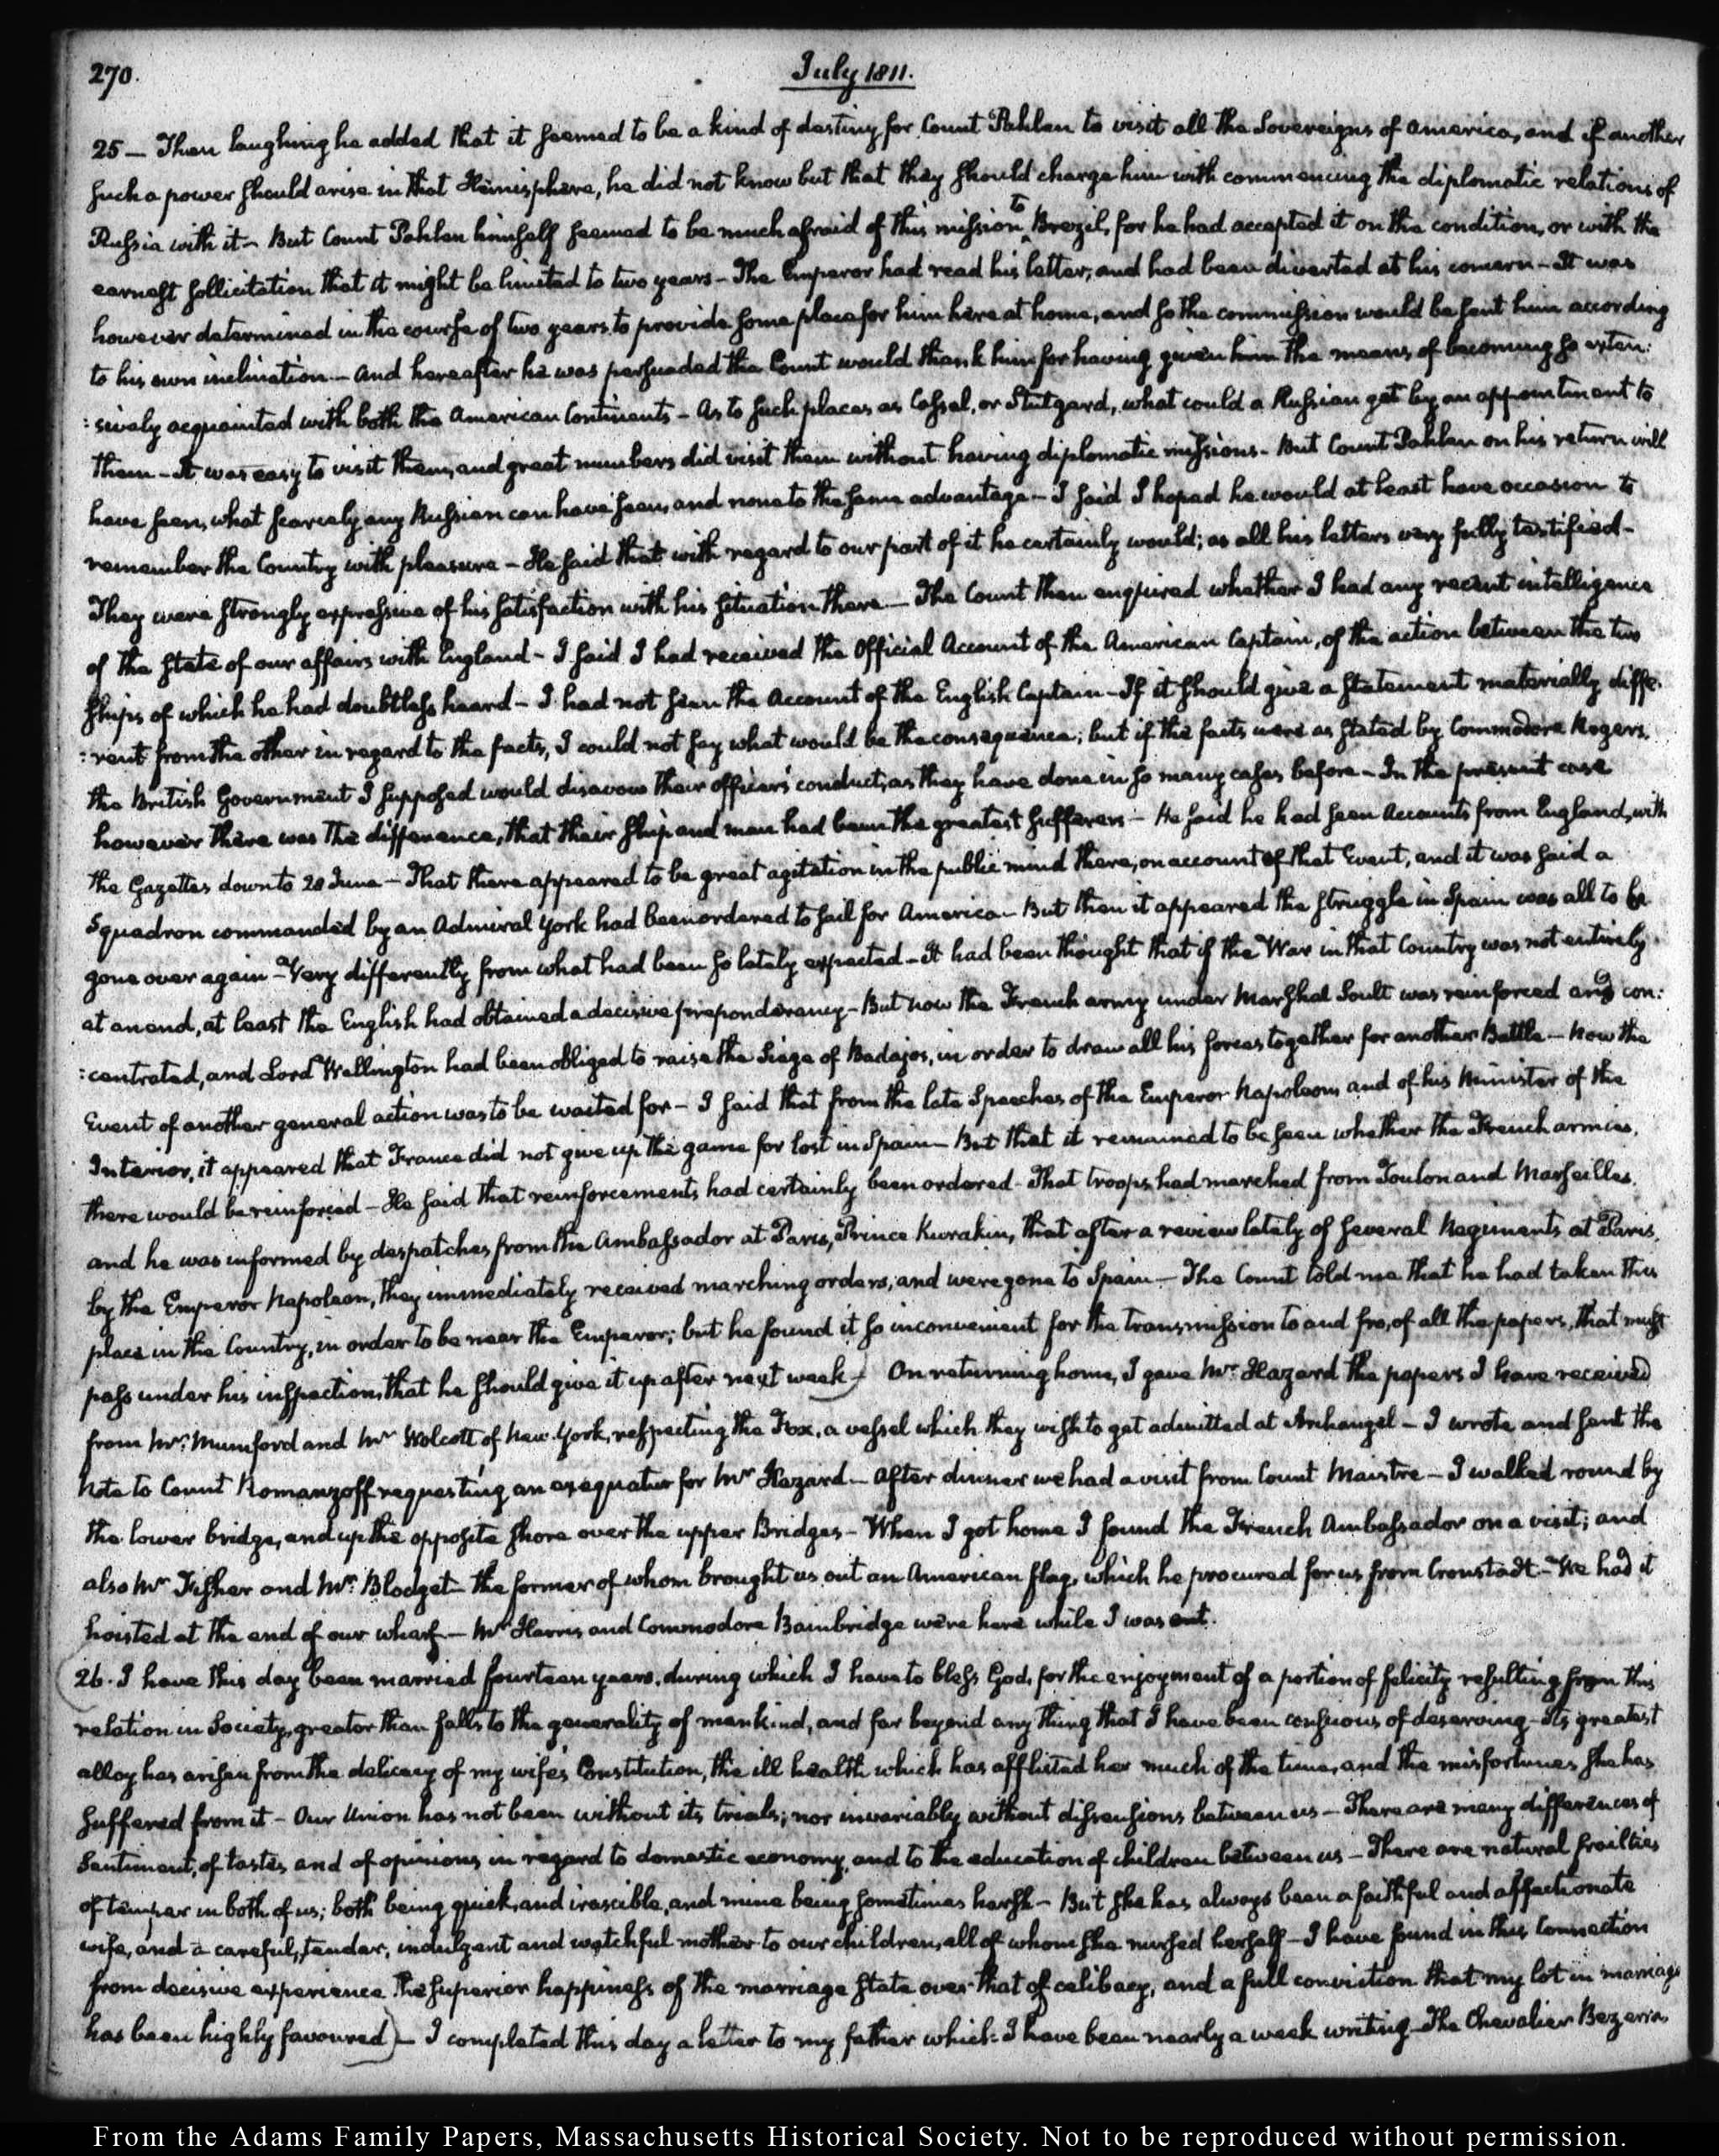 270.
July 1811.
25 — Then laughing he added that it seemed to be a kind of destiny for Count Pahlen to visit all the Sovereigns of America, and if another
such a power should arise in that Hemisphere, he did not know but that they should charge him with commencing the diplomatic relations of
Russia with it — But Count Pahlen himself seemed to be much afraid of this mission to Brezil, for he had accepted it on the condition, or with the
earnest sollicitation that it might be limited to two years — The Emperor had read his letter, and had been diverted at his concern — It was
however determined in the course of two years to provide some place for him here at home, and so the commission would be sent him according
to his own inclination — And hereafter he was persuaded the Count would thank him for having given him the means of becoming so exten:
:sively acquainted with both the American Continents — As to such places as Cassel, or Stutgard, what could a Russian get by an appointment to
them — It was easy to visit them, and great numbers did visit them without having diplomatic missions — But Count Pahlen on his return will
have seen, what scarcely any Russian can have seen, and none to the same advantage — I said I hoped he would at least have occasion to
remember the Country with pleasure — He said that with regard to our part of it he certainly would; as all his letters very fully testified —
They were strongly expressive of his satisfaction with his situation there — The Count then enquired whether I had any recent intelligence
of the state of our affairs with England — I said I had received the Official Account of the American Captain, of the action between the two
ships of which he had doubtless heard — I had not seen the Account of the English Captain — If it should give a statement materially diffe:
:rent from the other in regard to the facts, I could not say what would be the consequence; but if the facts were as stated by Commodore Rogers,
the British Government I supposed would disavow their officers' conduct, as they have done in so many cases before — In the present case
however there was the difference, that their ship and men had been the greatest sufferers — He said he had seen Accounts from England, with
the Gazettes down to 28 June — That there appeared to be great agitation in the public mind there, on account of that Event, and it was said a
Squadron commanded by an Admiral York had been ordered to sail for America — But then it appeared the struggle in Spain was all to be
gone over again — Very differently from what had been so lately expected — It had been thought that if the War in that Country was not entirely
at an end, at least the English had obtained a decisive preponderancy — But now the French army under Marshal Soult was reinforced and con:
:centrated, and Lord Wellington had been obliged to raise the Siege of Badajos, in order to draw all his forces together for another Battle — Now the
Event of another general action was to be waited for — I said that from the late Speeches of the Emperor Napoleon, and of his Minister of the
Interior, it appeared that France did not give up the game for lost in Spain — But that it remained to be seen whether the French armies,
there would be reinforced — He said that reinforcements had certainly been ordered — That troops had marched from Toulon and Marseilles,
and he was informed by despatches from the Ambassador at Paris, Prince Kurakin, that after a review lately of several Regiments at Paris,
by the Emperor Napoleon, they immediately received marching orders, and were gone to Spain — The Count told me that he had taken this
place in the Country, in order to be near the Emperor; but he found it so inconvenient for the transmission to and fro, of all the papers, that must
pass under his inspection, that he should give it up after next week) On returning home, I gave Mr. Hazard the papers I have received
from Mr. Mumford and Mr. Wolcott of New York, respecting the Fox, a vessel which they wish to get admitted at Archangel — I wrote and sent the
Note to Count Romanzoff requesting an exequatur for Mr. Hazard — After dinner we had a visit from Count Maistre — I walked round by
the lower bridge, and up the opposite shore over the upper Bridges — When I got home I found the French Ambassador on a visit; and
also Mr. Fisher and Mr. Blodget — the former of whom brought us out an American flag, which he procured for us from Cronstadt — We had it
hoisted at the end of our wharf — Mr. Harris and Commodore Bainbridge were here while I was out.
26. I have this day been married fourteen years, during which I have to bless God, for the enjoyment of a portion of felicity resulting from this
relation in Society, greater than falls to the generality of mankind, and far beyond any thing that I have been conscious of deserving — Its greatest
alloy has arisen from the delicacy of my wife's Constitution, the ill health which has afflicted her much of the time, and the misfortunes she has
suffered from it — Our Union has not been without its trials; nor invariably without dissensions between us — There are many differences of
Sentiment, of tastes, and of opinions in regard to domestic economy, and to the education of children between us — There are natural frailties
of temper in both of us; both being quick, and irascible, and mine being sometimes harsh — But she has always been a faithful and affectionate
wife, and a careful, tender, indulgent and watchful mother to our children, all of whom she nursed herself — I have found in this Connection
from decisive experience the superior happiness of the marriage state over that of celibacy, and a full conviction that my lot in marriage
has been highly favoured) — I completed this day a letter to my father which I have been nearly a week writing — The Chevalier Bezerra,
From the Adams Family Papers, Massachusetts Historical Society. Not to be reproduced without permission.